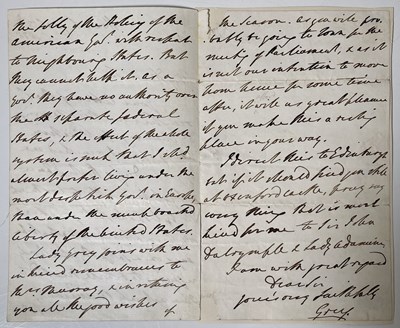 the folly of the Policy of the
American Gov. with respect
to Neighbouring States. But
they cannot help it. as a
Gov. they have no authority over
the separate federal
States, & the effect of the whole
system is such that I sh.d
almost prefer living under the
most despotick Gov. in Europe,
than under the much boasted
liberty of the United States.
Lady Grey joins with me
in kind remembrances to
Mrs Murray, & in wishing
you all the good wishes
of
the Season. As you will pro-
bably be going to Town for the
meeting of Parliament, & as it
is not our intention to move
from hence for some time
after, it will us great pleasure
if you make this a resting
place in your way.
I direct this to Edinburgh
but if it should find you still
at Oxenford Castle, pray say
every thing that is most
kind for me to Sir John
Dalrymple & Lady Adamina
I am with great regard
Dear Sir
yours very faithfully
Grey